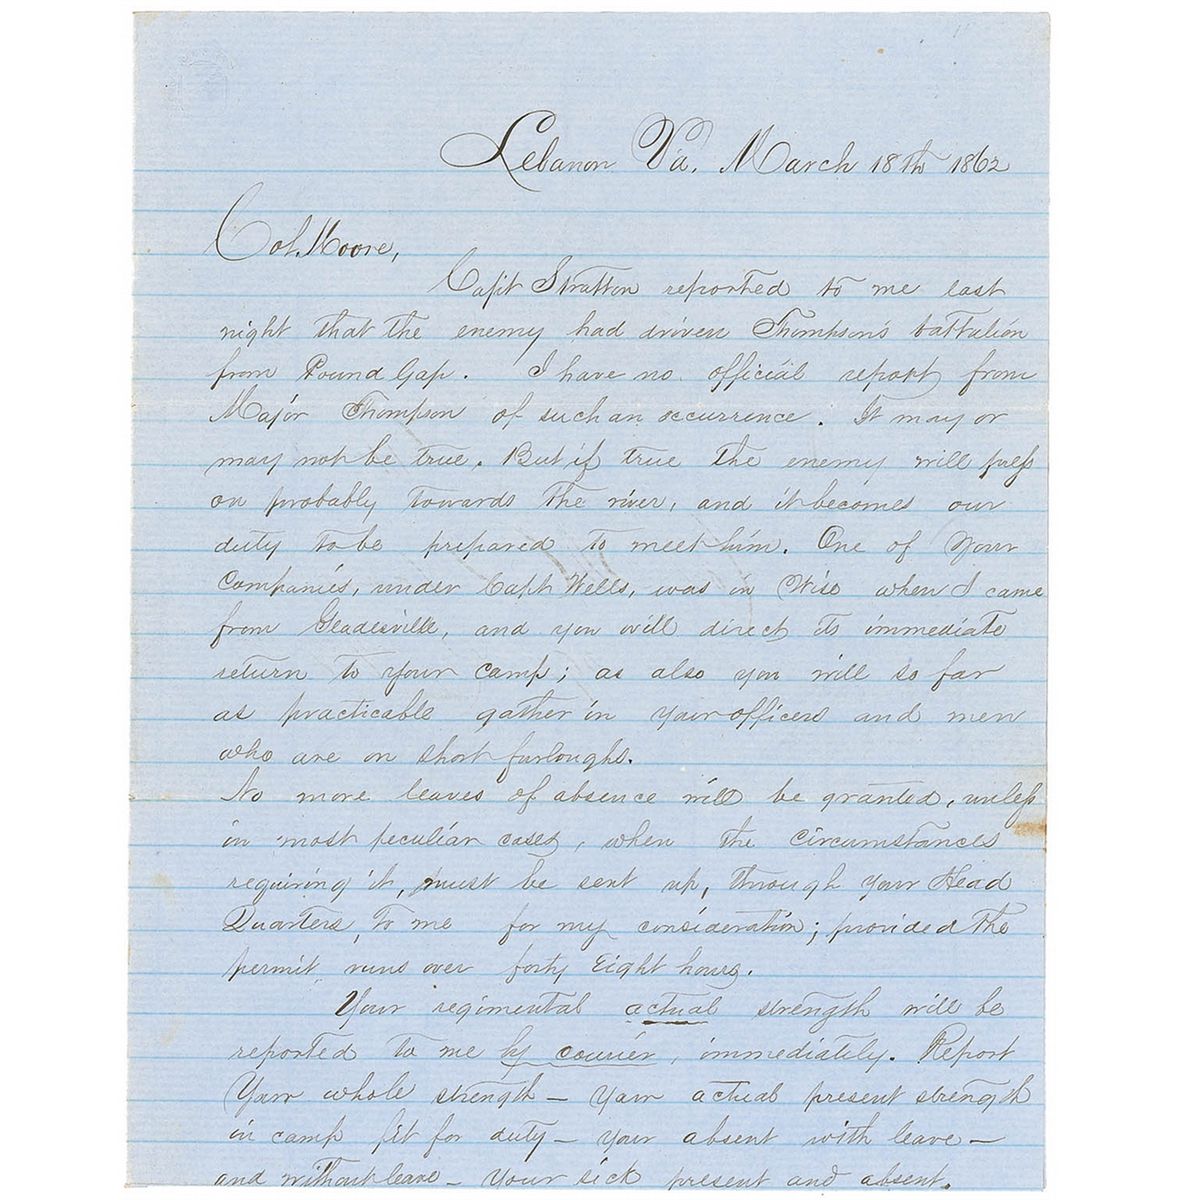 Lebanon Va. March 18th 1862
Col. Moore,
Capt Stratton reported to me last
night that the enemy had driven Thompson's battalion
from Pound Gap. I have no official report from
Major Thompson of such an occurrence. It may or
may not be true. But if true the enemy will press
on probably towards the river, and it becomes our
duty to be prepared to meet him. One of Your
Companies, under Capt Wells, was in Wise when I came
from Gladesville, and you will direct its immediate
return to your camp; as also you will so far
as practicable gather in your officers and men
who are on short furloughs.
No more leaves of absence will be granted, unless
in most peculiar cases, when the circumstances
requiring it, must be sent up, through your Head
Quarters, to me for my consideration; provided the
permit runs over forty Eight hours.
Your regimental actual strength will be
reported to me by courier, immediately. Report
Your whole strength – Your actual present strength
in camp fit for duty – your absent with leave –
and without leave – Your sick present and absent.